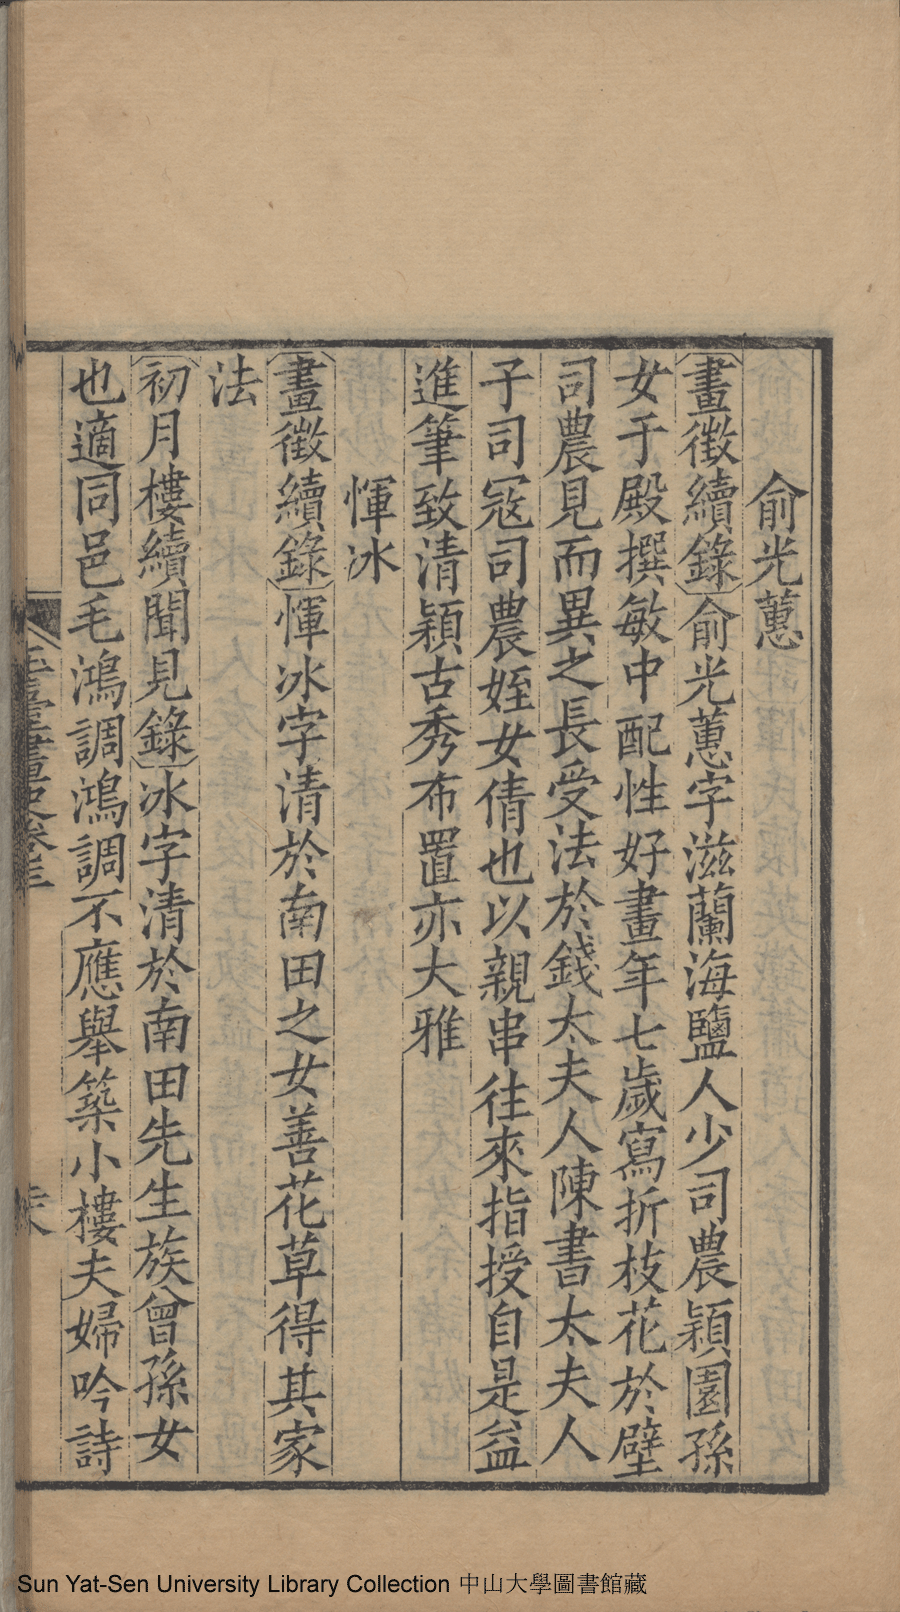 俞光蕙
畫徵續錄俞光蕙字滋蘭海鹽人少司農穎園孫
女于殿撰敏中配性好畫年七歲寫折枝花於壁
司農見而異之長受法於錢太夫人陳書太夫人
子司冦司農姪女倩也以親串往來指授自是益
進筆致清穎古秀布置亦大雅
惲冰
畫徵續錄惲冰字清於南田之女善花草得其家
法
初月樓續聞見錄冰字清於南田先生族曾孫女
也適同邑毛鴻調鴻調不應舉築小樓夫婦吟詩
玉臺畫史卷三
Sun Yat-Sen University Library Collection 中山大學圖書館藏